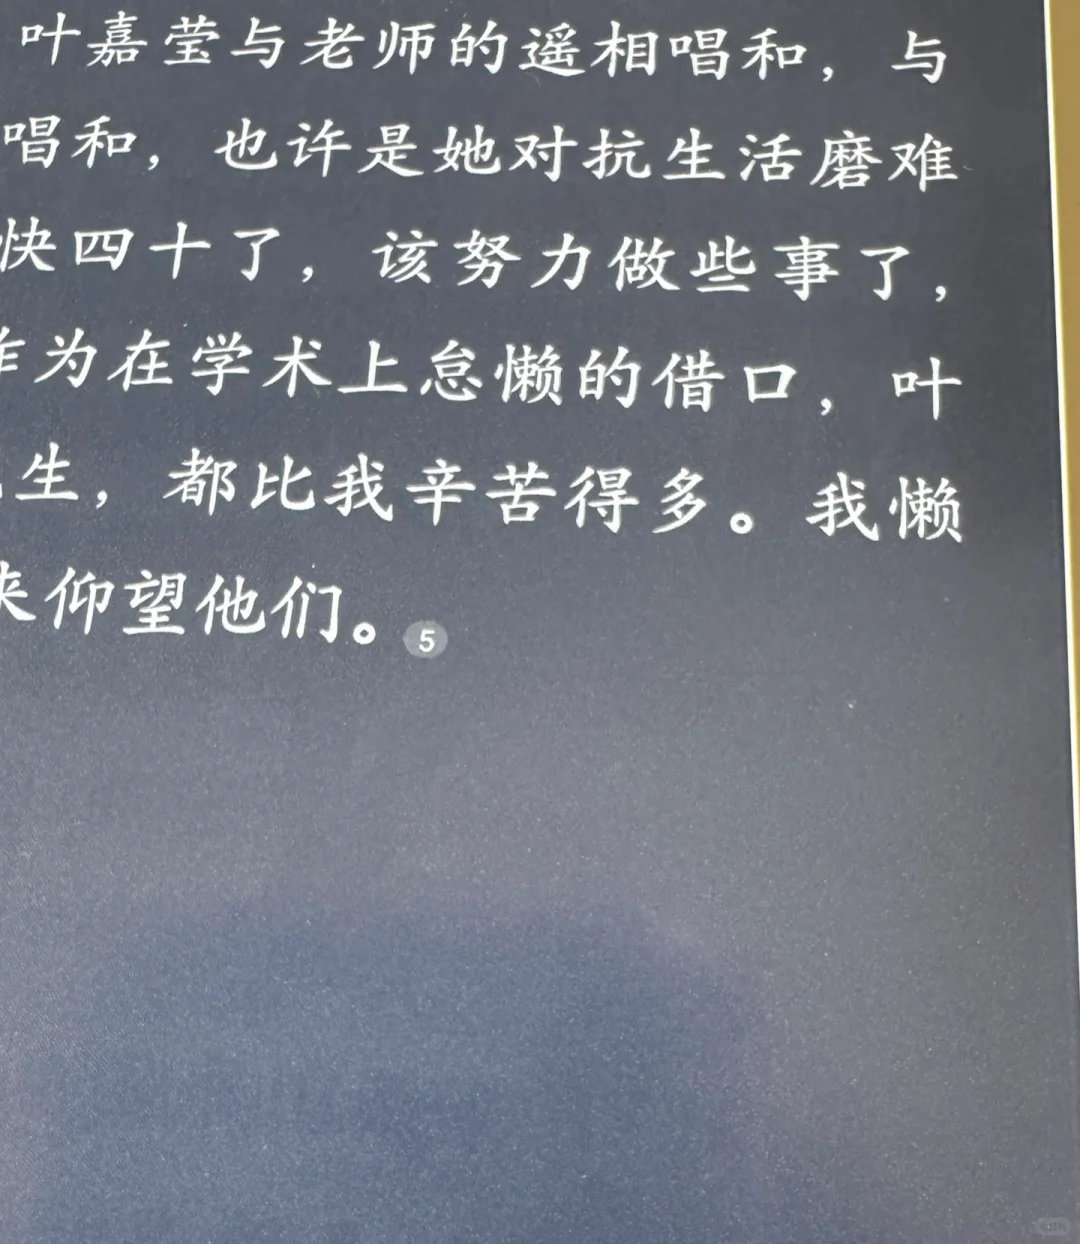 叶嘉莹与老师的遥相唱和，与
唱和，也许是她对抗生活磨难
快四十了，该努力做些事了，
作为在学术上怠懒的借口，叶
生，都比我辛苦得多。我懒
来仰望他们。5